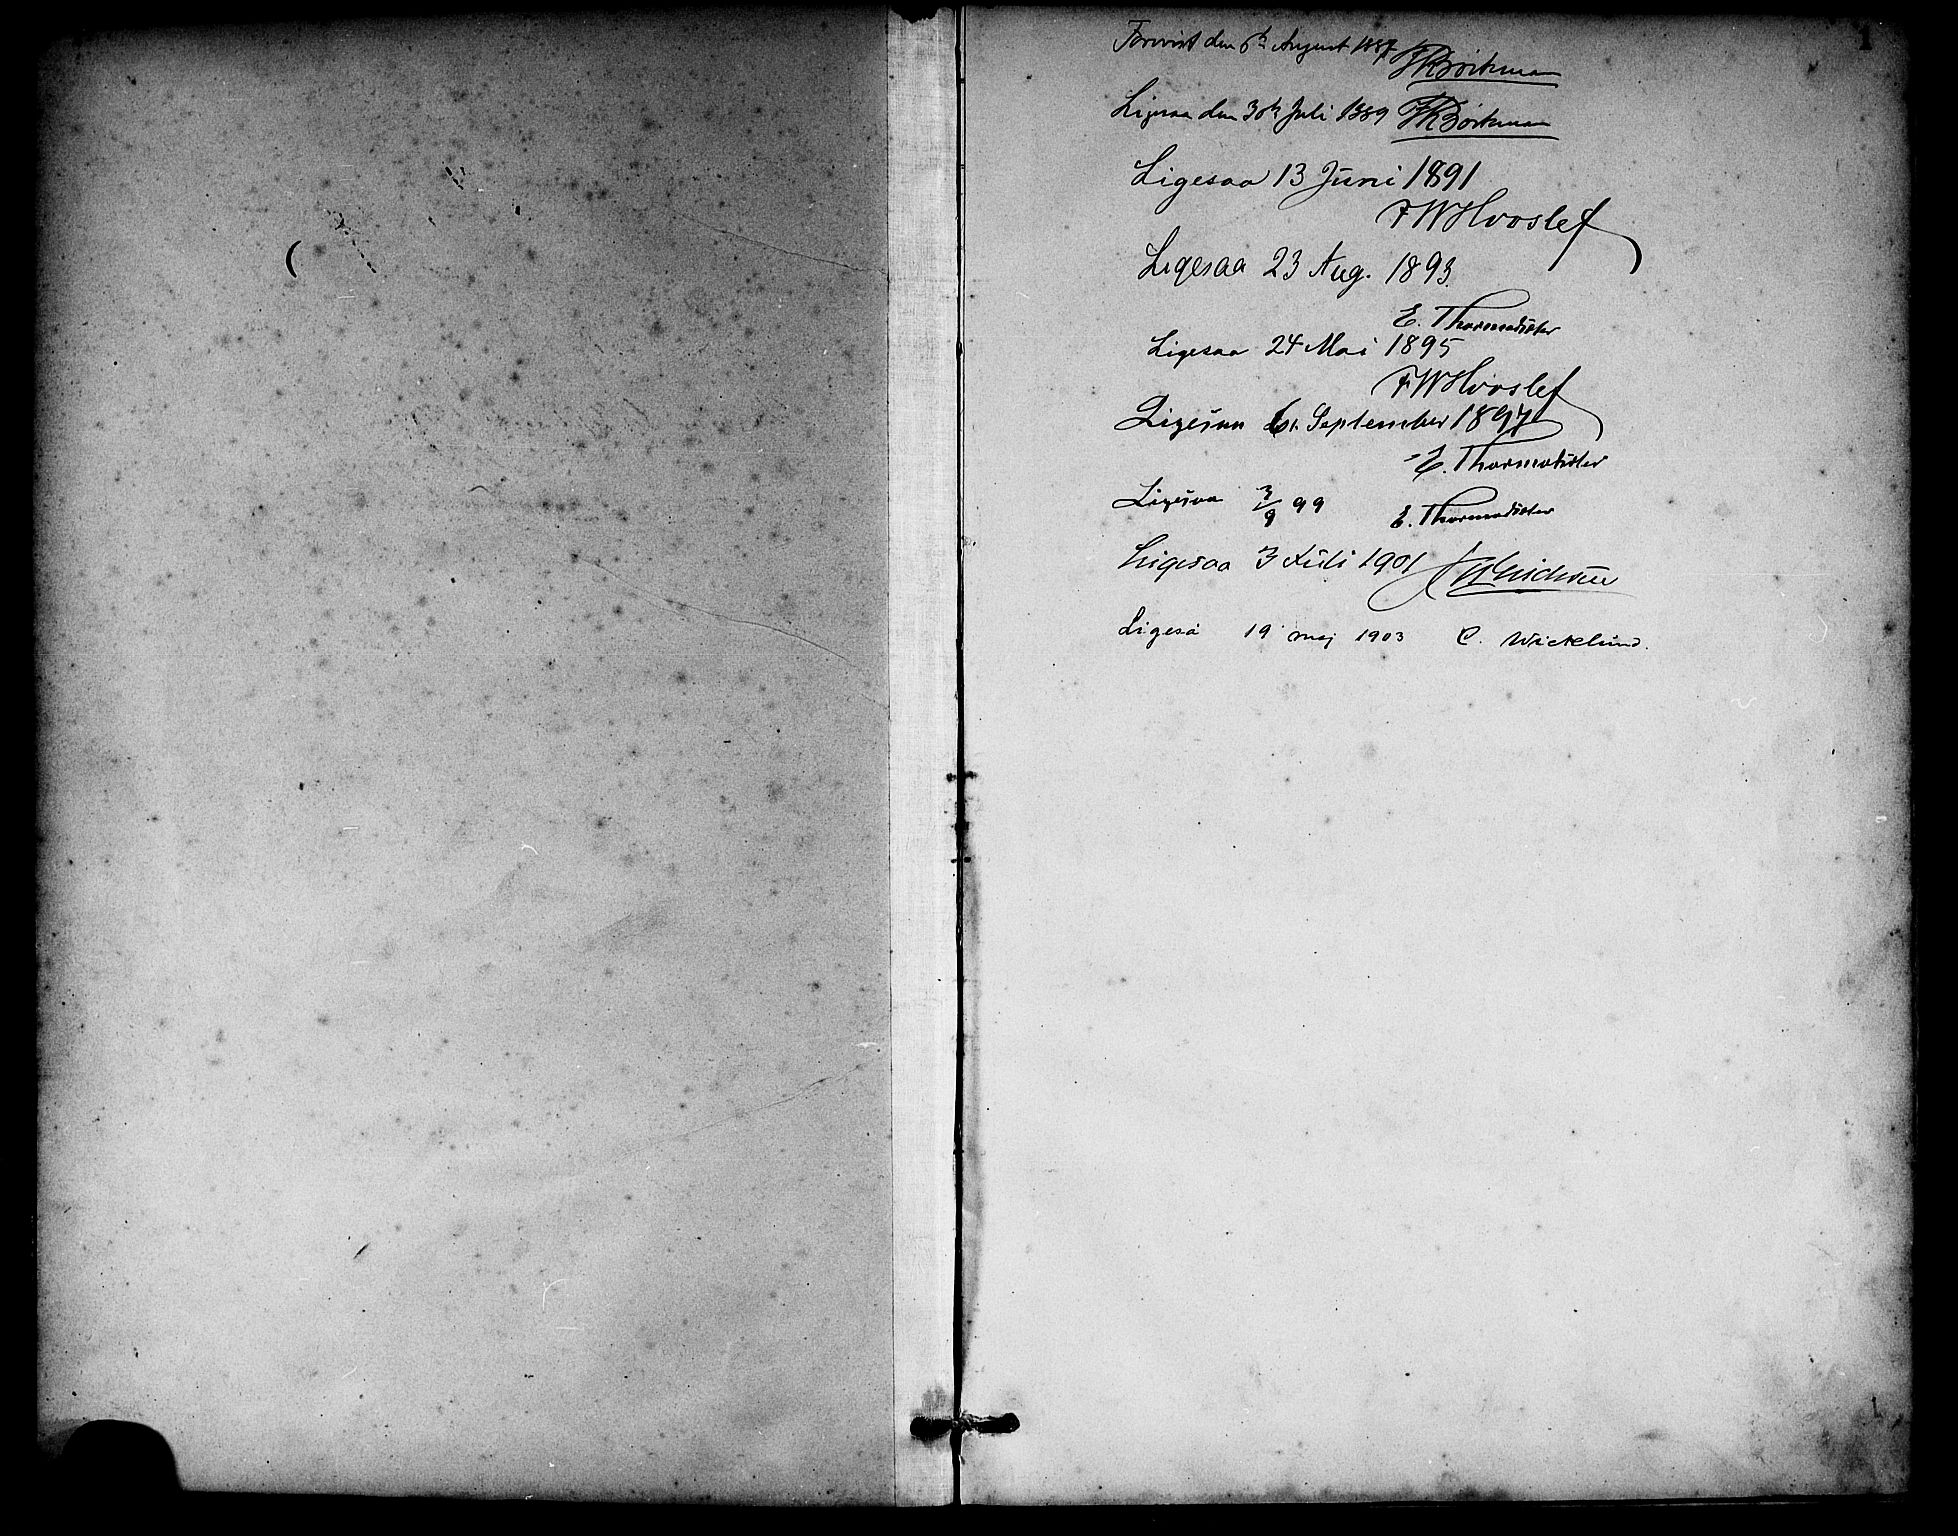 1
Forevist den 6te August 1887 JRBöckman
Ligesaa den 30te Juli 1889 JRBöckman
Ligesaa 13 Juni 1891
FWHvoslef
Ligesaa 23 Aug. 1893.
E. Thormodsäter
Ligesaa 24 Mai 1895
FWHvoslef
Ligesaa 6. September 1897
E. Thormodsäter
Ligesaa 3/9 99 E. Thormodsäter
Ligesaa 3 Juli 1901
Ligeså 19 maj 1903 C. Wicklund.
1